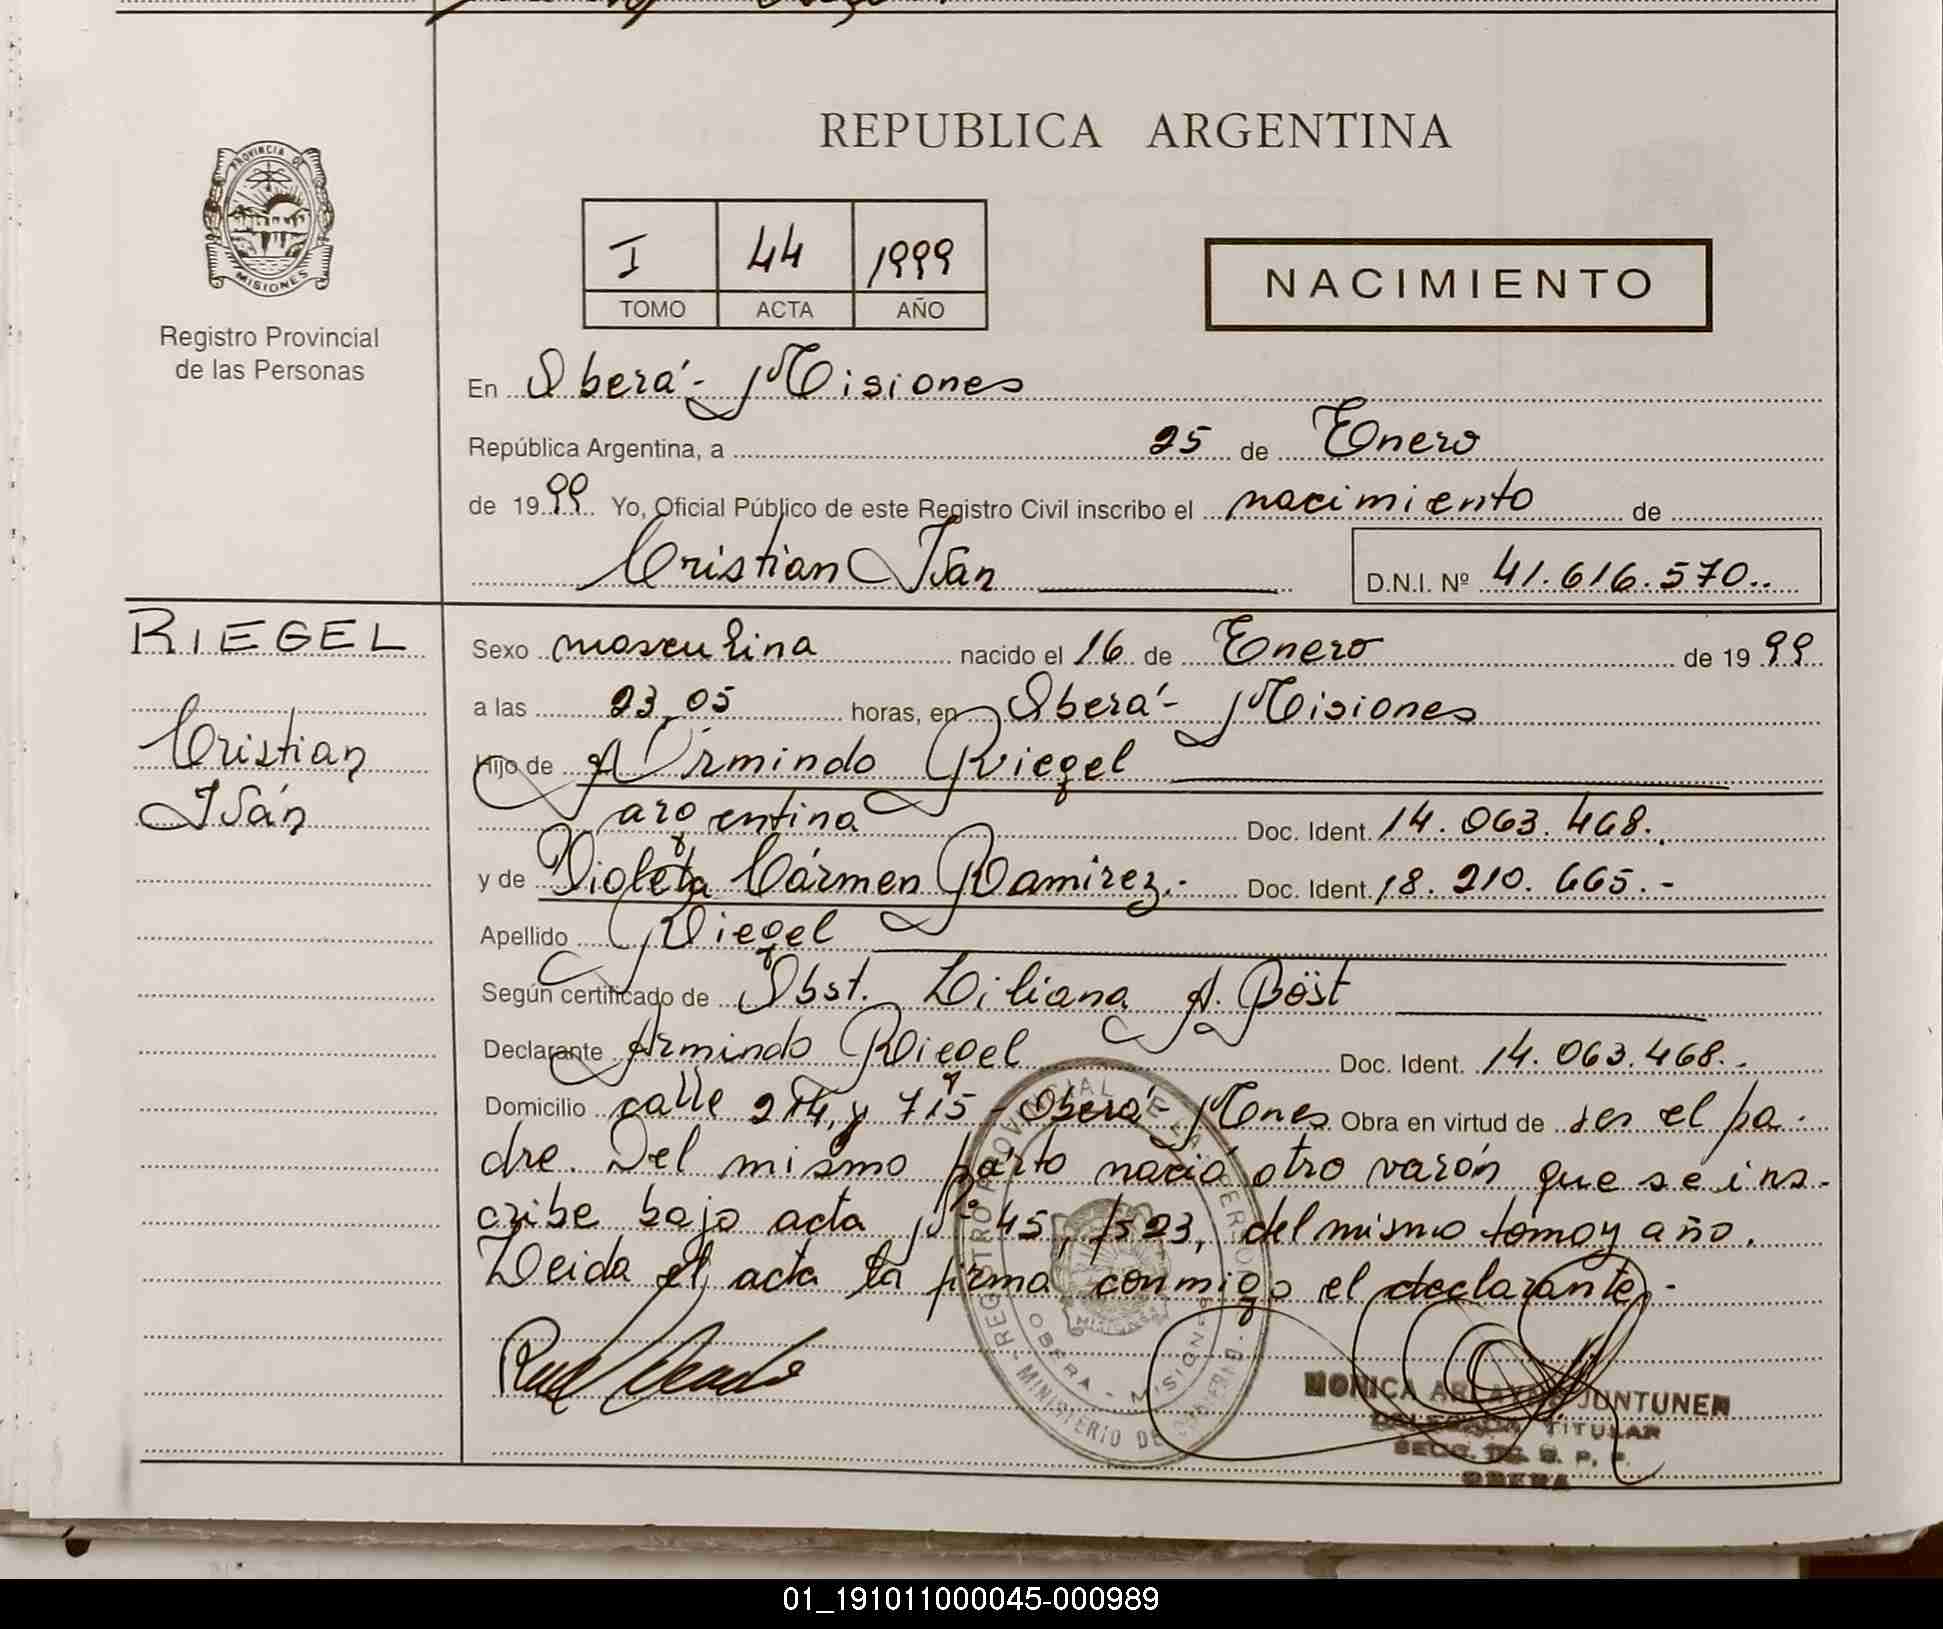 REPUBLICA ARGENTINA
PROVINCIA DE
MISIONES
Registro Provincial
de las Personas
I 44 1999
TOMO ACTA AÑO
NACIMIENTO
En Oberá - Misiones
República Argentina, a 25 de Enero
de 1999 Yo, Oficial Público de este Registro Civil inscribo el nacimiento de
Cristian Iván
D.N.I. Nº 41.616.570..
RIEGEL
Cristian
Iván
Sexo masculina nacido el 16 de Enero de 1999
a las 23,05 horas, en Oberá - Misiones
Hijo de Armindo Riegel
argentina Doc. Ident. 14.063.468.
y de Violeta Cármen Ramirez.- Doc. Ident. 18.210.665.-
Apellido Riegel
Según certificado de Obst. Liliana A. Böst
Declarante Armindo Riegel Doc. Ident. 14.063.468..
Domicilio calle 214, y 715 - Oberá - Mones Obra en virtud de ser el pa-
dre. Del mismo parto nació otro varón que se ins-
cribe bajo acta Nº 45, /523, del mismo tomo y año.
Leida el acta la firma conmigo el declarante.-
REGISTRO PROVINCIAL DE LAS PERSONAS
OBERA - MISIONES
MINISTERIO DE GOBIERNO
MONICA JUNTUNEN
DELEGADA TITULAR
OBERA
01_191011000045-000989